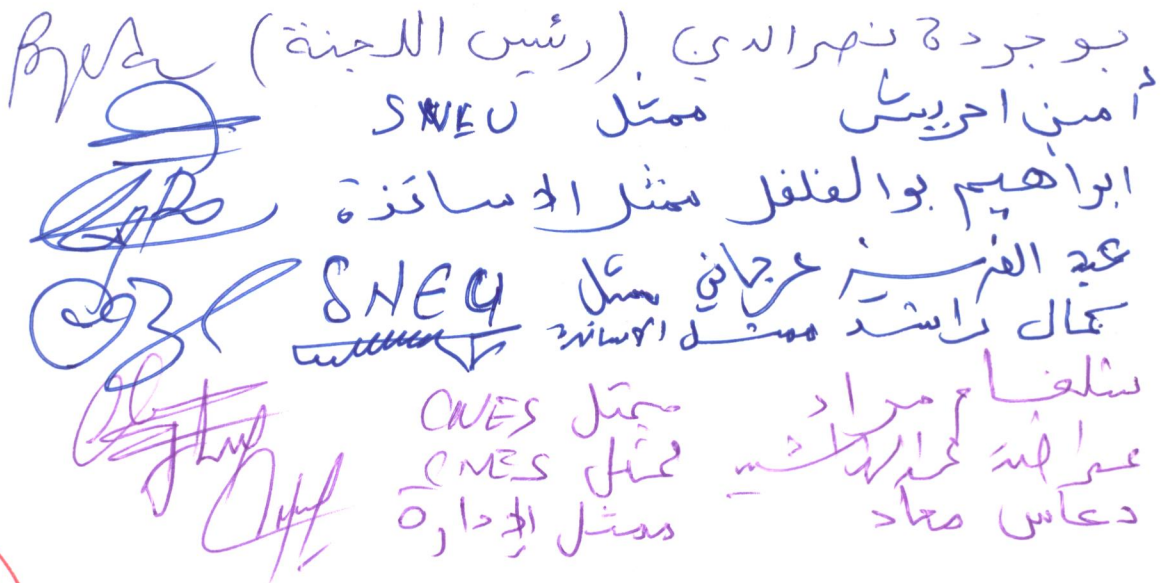 بوجردة نصر الدين (رئيس اللجنة)
أمين احريش ممثل SNEU
ابراهيم بوالفلفل ممثل الاساتذة
عبد العزيز عرجاني ممثل SNEU
كمال راشد ممثل الاساتذة
سلغام مراد ممثل CNES
ممثل CNES
دعاس معاد ممثل الإدارة